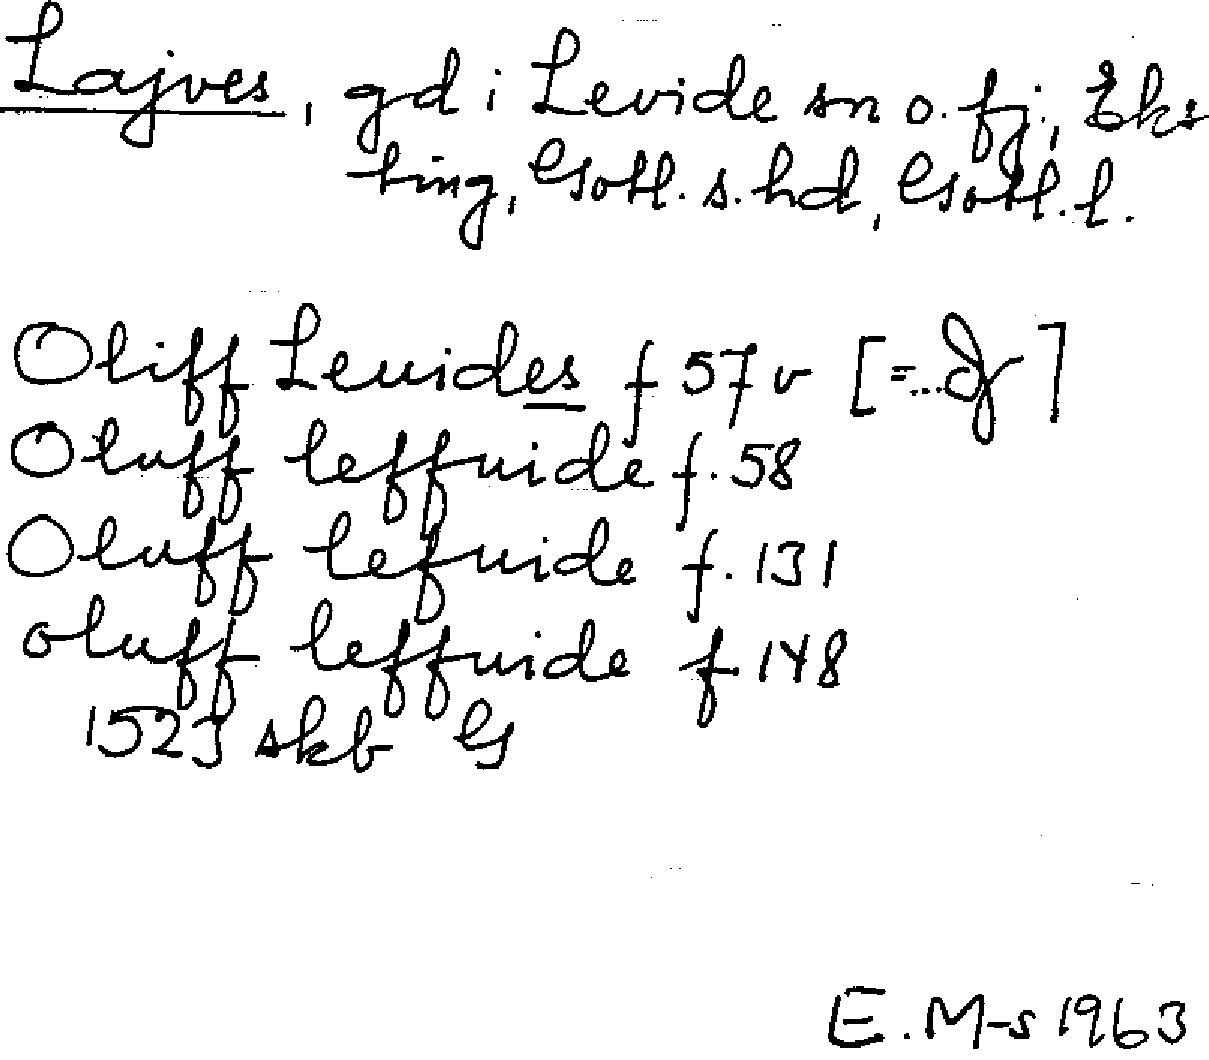 Lajves, gd i Levide sn o. fj., Eks
ting, Gotl. s. hd, Gotl. l.
Oliff Leuides f 57 v [=...]
Oluff leffuide f. 58
Oluff lefuide f. 131
oluff leffuide f 148
1523 skb G
E. M-s 1963